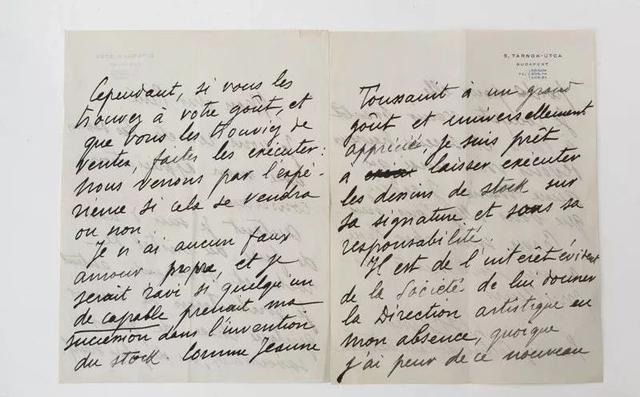 Cependant, si vous les
trouvez à votre goût, et
que vous les trouviez de
ventes, faites les exécuter:
nous verrons par l'expé-
rience si cela se vendra
ou non.
Je n'ai aucun faux
amour propre, et je
serait ravi si quelqu'un
de capable prenait ma
succession dans l'invention
du stock. Comme Jeanne
5, TARNOK-UTCA
BUDAPEST
Toussaint à un grand
goût et universellement
apprécié, je suis prêt
a laisser executer
les dessins de stock sur
sa signature et sous sa
responsabilité.
Il est de l'intérêt évident
de la Société de lui donner
la Direction artistique en
mon absence, quoique
j'ai peur de ce nouveau